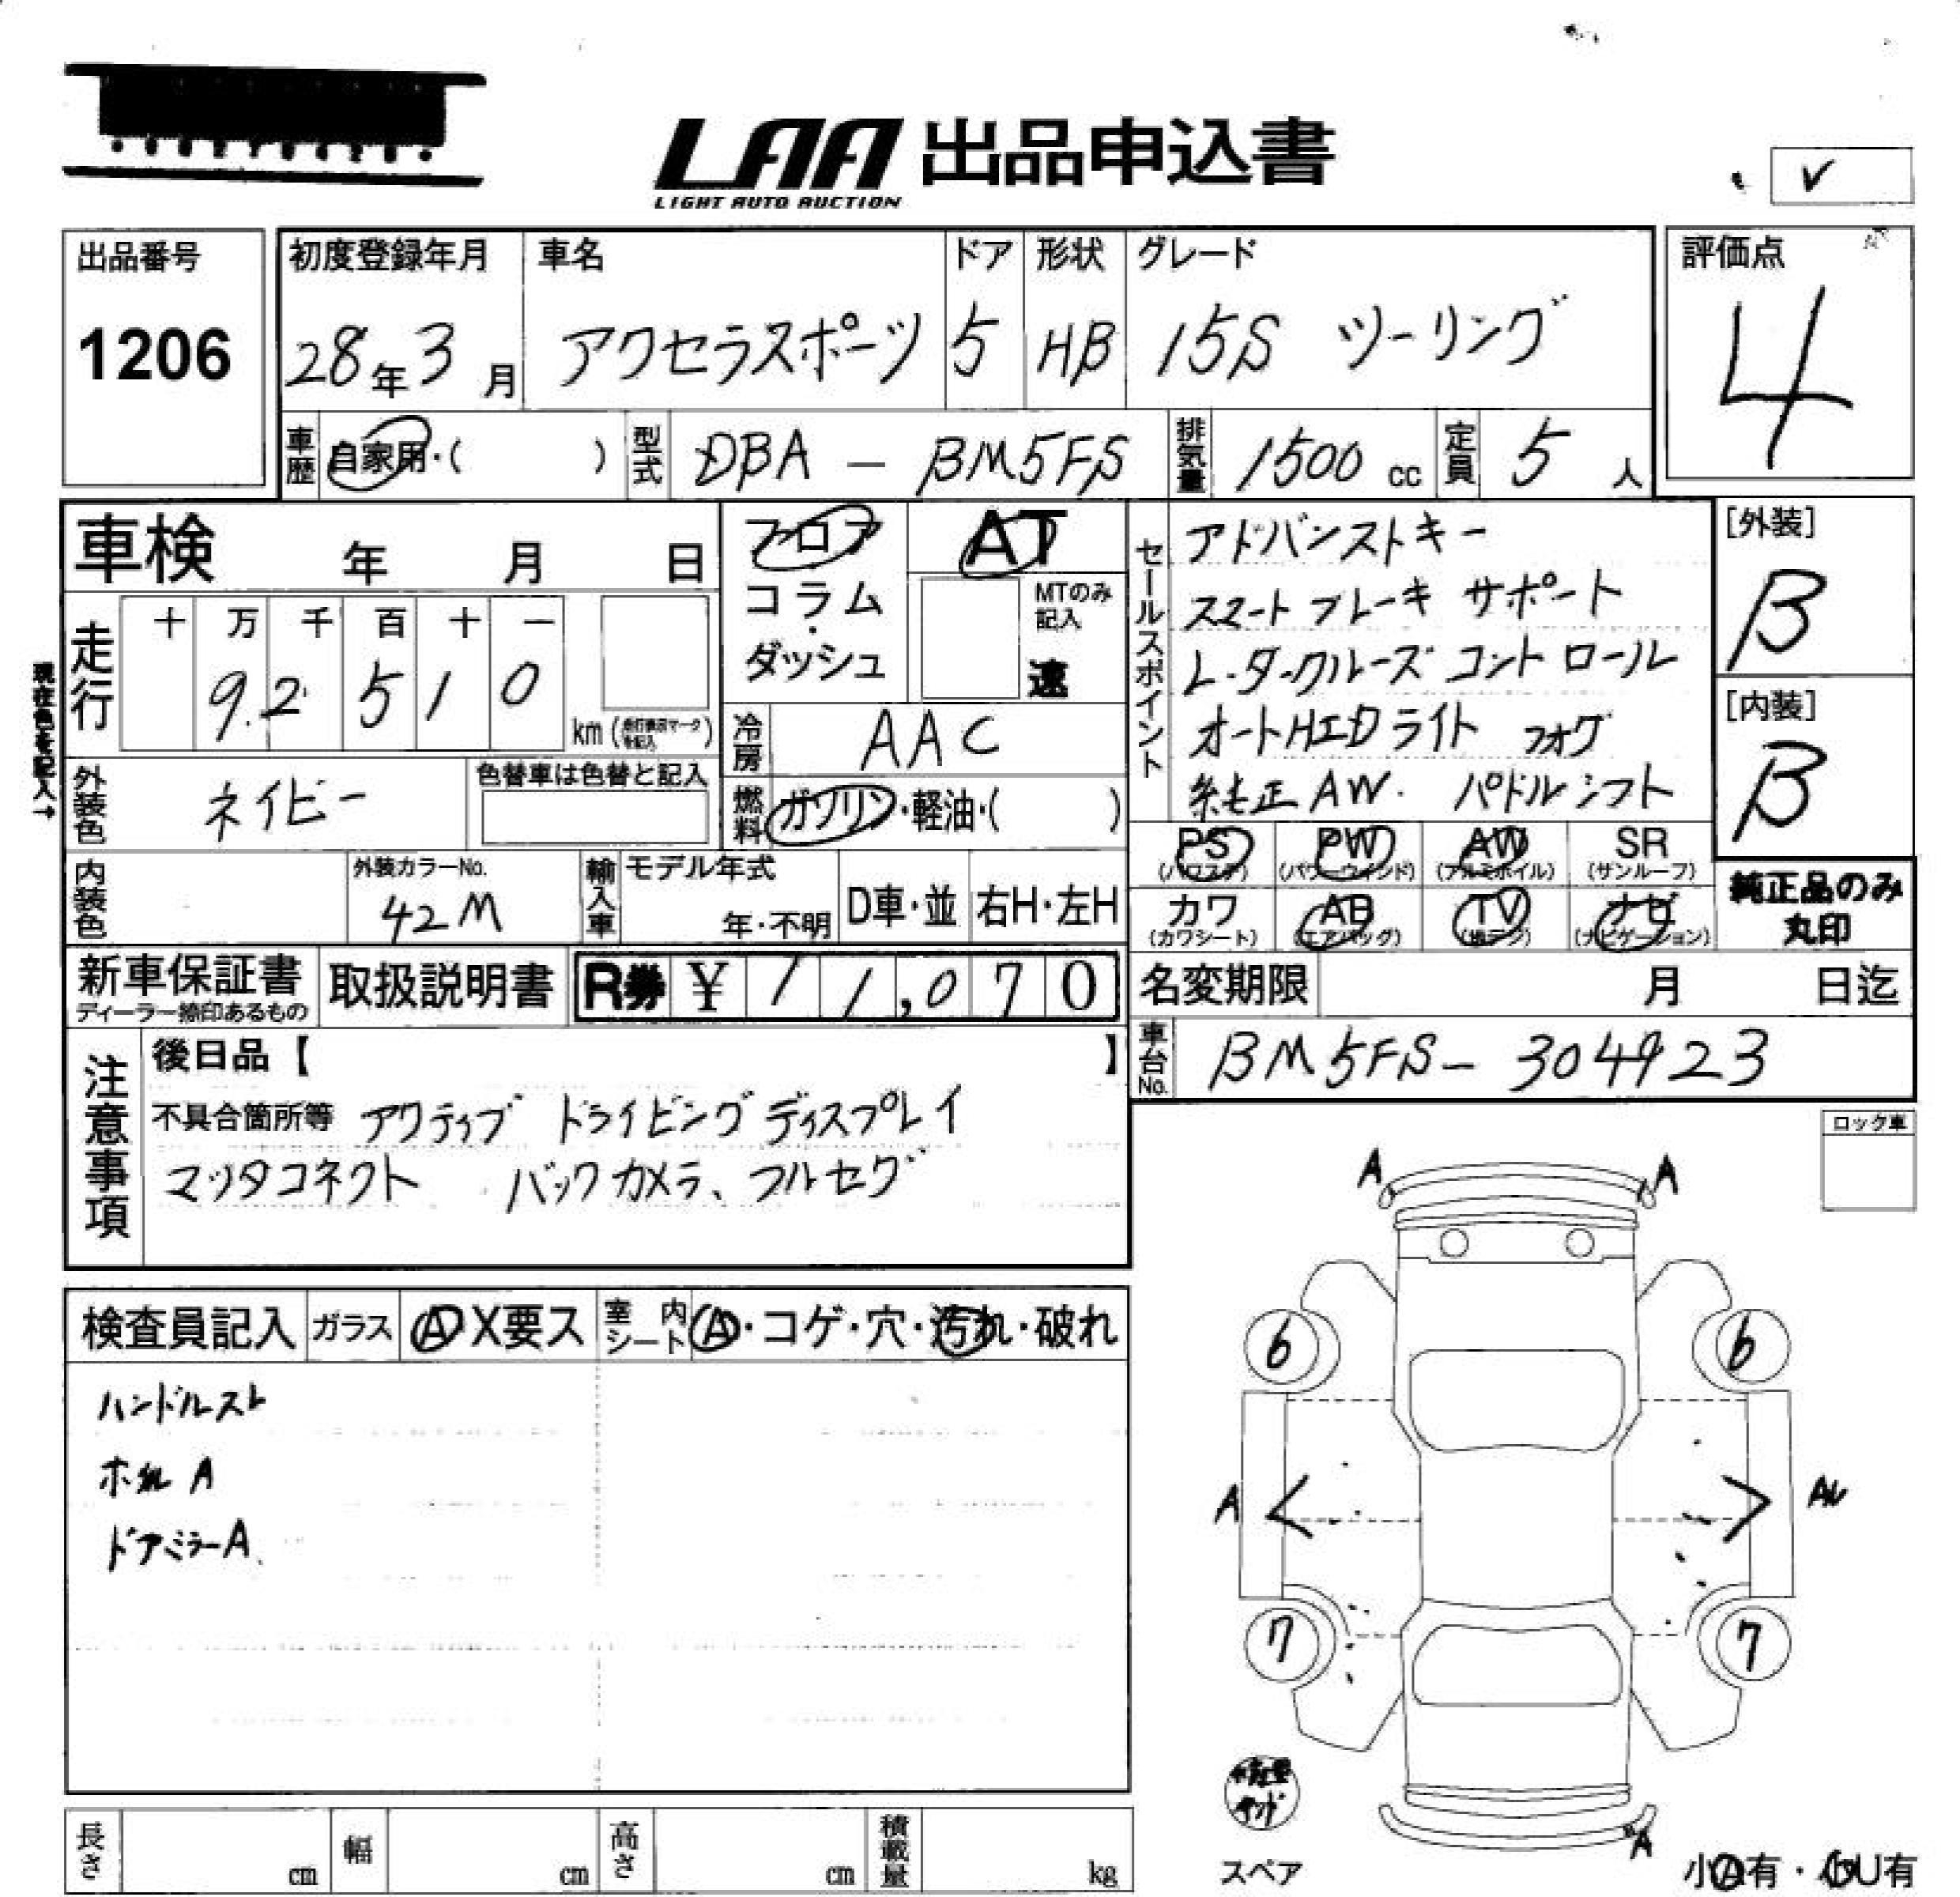 LAA 出品申込書
LIGHT AUTO AUCTION
V
出品番号
1206
初度登録年月
28年3月
車名
アクセラスポーツ
ドア
5
形状
HB
グレード
15S ツーリング
評価点
4
車歴
自家用・( )
型式
DBA - BM5FS
排気量
1500 cc
定員
5 人
車検 年 月 日
フロア
コラム・ダッシュ
AT
MTのみ記入
速
セールスポイント
アドバンストキー
スマートブレーキサポート
レーダークルーズコントロール
オートHIDライト フォグ
純正AW. パドルシフト
[外装]
B
[内装]
B
現在色を記入→
走行
十 万 千 百 十 一
92510
km
冷房
AAC
外装色
ネイビー
色替車は色替と記入
燃料
ガソリン・軽油・( )
PS
(パワステ)
PW
(パワーウインド)
AW
(アルミホイル)
SR
(サンルーフ)
カワ
(カワシート)
AB
(エアバッグ)
TV
(地デジ)
ナビ
(ナビゲーション)
純正品のみ
丸印
内装色
外装カラーNo.
42M
輸入車
モデル年式
年・不明
D車・並
右H・左H
新車保証書
ディーラー捺印あるもの
取扱説明書
R券 ¥ 11,070
名変期限 月 日迄
車台No.
BM5FS-304923
注意事項
後日品【 】
不具合箇所等 アクティブ ドライビングディスプレイ
マツダコネクト バックカメラ、フルセグ
ロック車
A A
検査員記入
ガラス
A X要ス
室内シート
A・コゲ・穴・汚れ・破れ
ハンドルスレ
A
ドアミラーA
6 6
A
7 7
A
スペア
小A有・小U有
長さ cm
幅 cm
高さ cm
積載量 kg